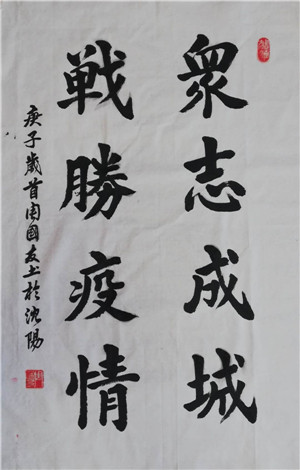 衆志成城
戦勝疫情
庚子歲首周國友上於沈陽